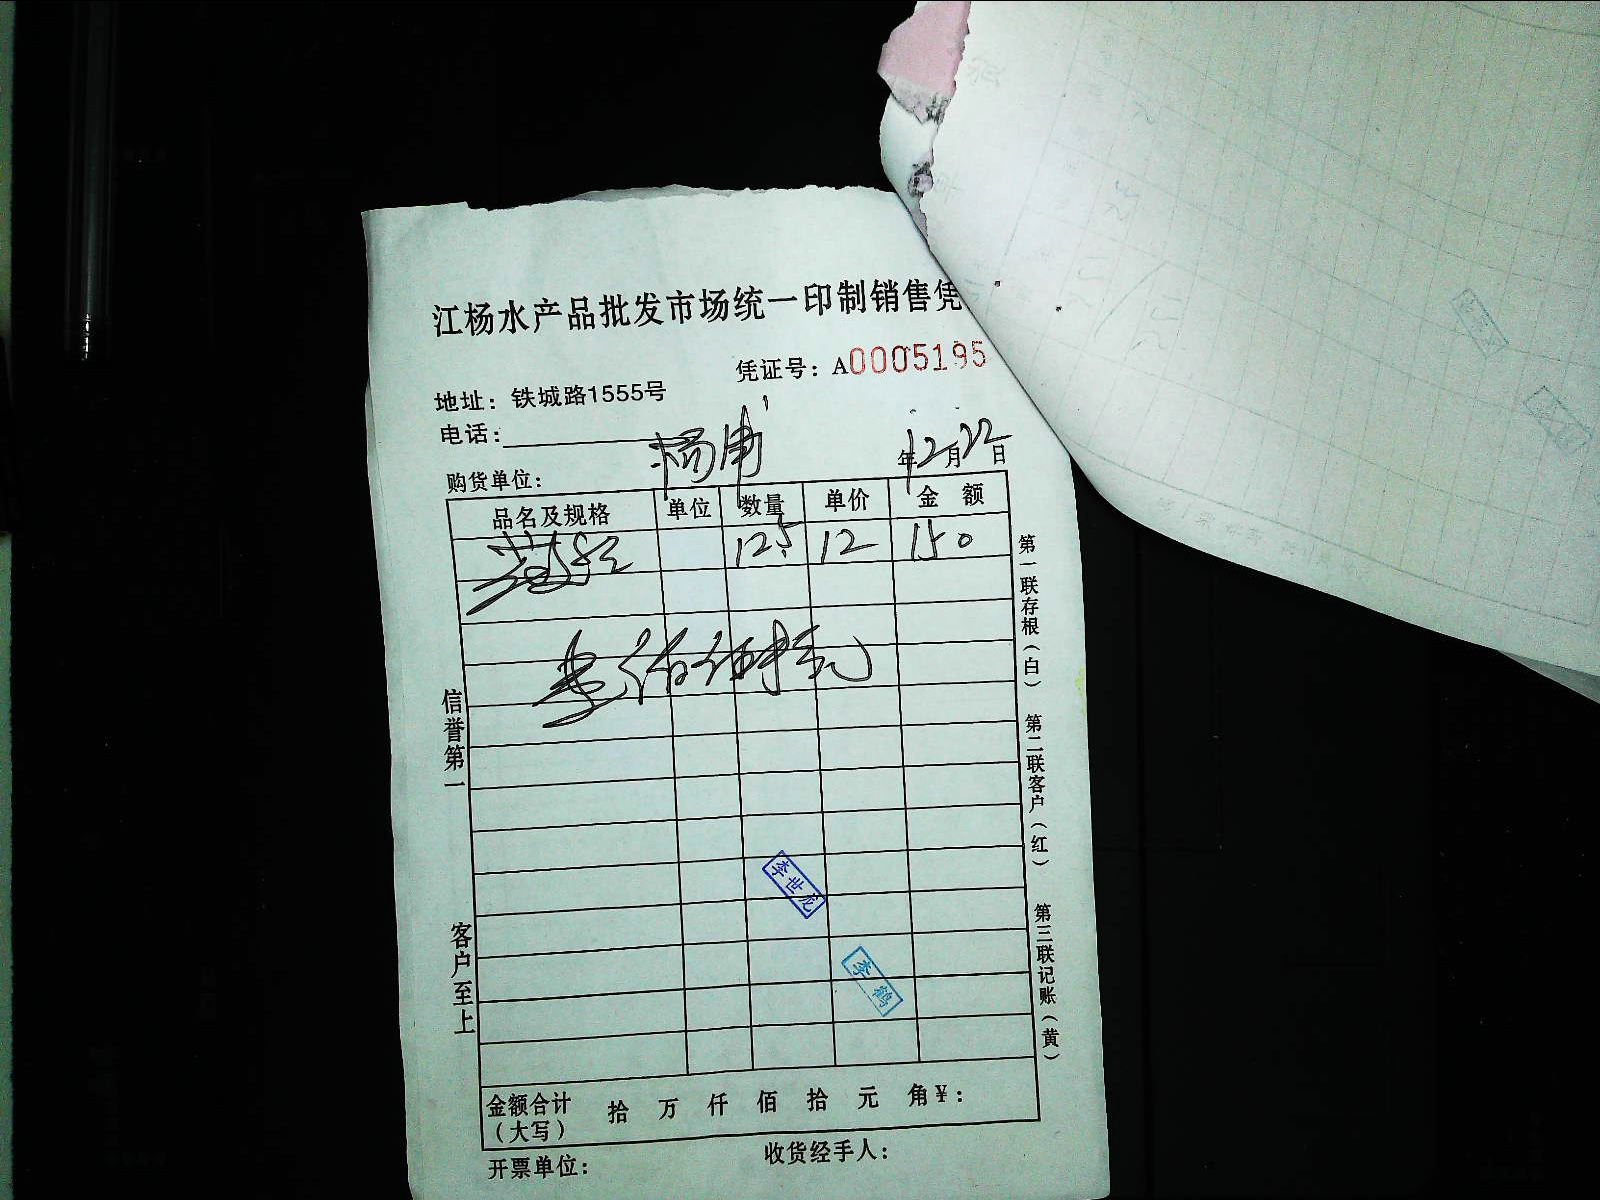 江杨水产品批发市场统一印制销售凭
凭证号：A0005195
地址：铁城路1555号
电话：
购货单位： 杨浦 年12月22日
品名及规格 单位 数量 单价 金额
12.5 12 150
信誉第一
客户至上
第一联存根（白）
第二联客户（红）
第三联记账（黄）
李世龙
李鹤
金额合计（大写） 拾 万 仟 佰 拾 元 角 ¥：
开票单位： 收货经手人：